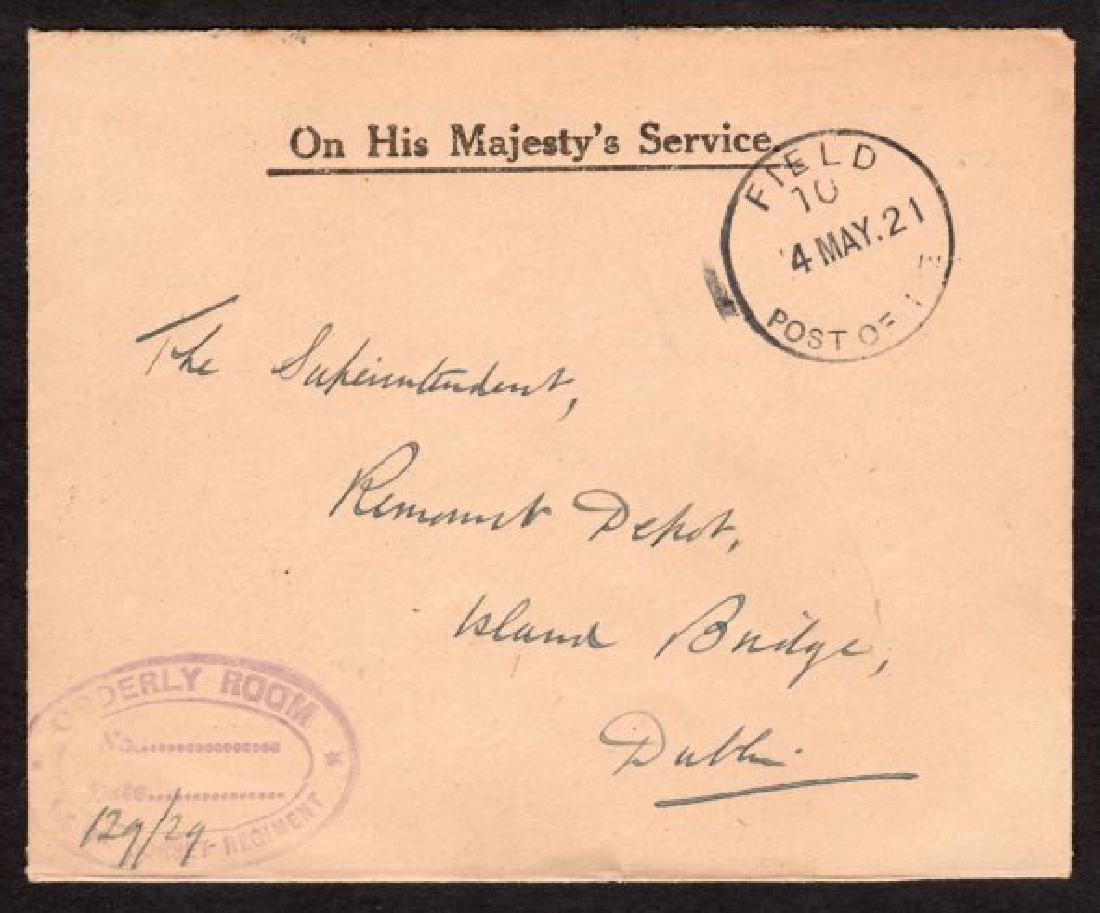 On His Majesty's Service.
FIELD
10
4 MAY. 21
POST OFFICE
The Superintendent,
Remount Depot,
Island Bridge,
Dublin
ORDERLY ROOM
No.
Date
REGIMENT
129/29